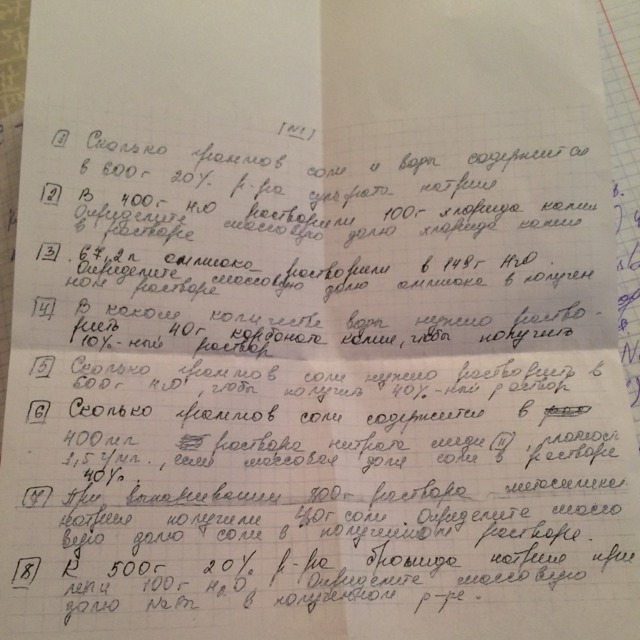 [N1]
1 Сколько граммов соли и воды содержится
в 600г 20% р-ра сульфата натрия
2 В 400г H2O растворили 100г хлорида калия
Определите массовую долю хлорида калия
в растворе
3 67,2л аммиака растворили в 148г H2O.
Определите массовую долю аммиака в получен
ном растворе
4 В каком количестве воды нужно раство-
рить 40г карбоната калия, чтобы получить
10%-ный раствор
5 Сколько граммов соли нужно растворить в
600г H2O, чтобы получить 40%-ный раствор
6 Сколько граммов соли содержится в
400мл раствора нитрата меди (II), плотност
1,5г/мл., если массовая доля соли в растворе
40%.
7 При выпаривании 800г раствора
натрия получили 40г соли Определите массо
вую долю соли в полученном растворе.
8 К 500г 20% р-ра бромида натрия при
лили 100г H2O. Определите массовую
долю NaBr в полученном р-ре.